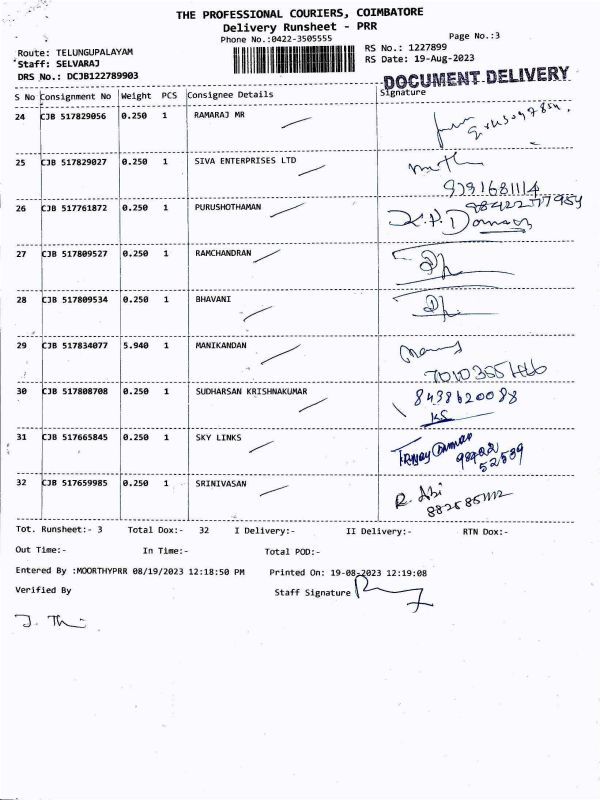 THE PROFESSIONAL COURIERS, COIMBATORE
Delivery Runsheet - PRR
Phone No.:0422-3505555
Page No.:3
Route: TELUNGUPALAYAM
RS No.: 1227899
Staff: SELVARAJ
RS Date: 19-Aug-2023
DRS No.: DCJB122789903
DOCUMENT DELIVERY
S No Consignment No Weight PCS Consignee Details Signature
24 CJB 517829056 0.250 1 RAMARAJ MR
25 CJB 517829027 0.250 1 SIVA ENTERPRISES LTD
9791681114
26 CJB 517761872 0.250 1 PURUSHOTHAMAN
27 CJB 517809527 0.250 1 RAMCHANDRAN
28 CJB 517809534 0.250 1 BHAVANI
29 CJB 517834077 5.940 1 MANIKANDAN
30 CJB 517808708 0.250 1 SUDHARSAN KRISHNAKUMAR 8438620088
KS
31 CJB 517665845 0.250 1 SKY LINKS
52539
32 CJB 517659985 0.250 1 SRINIVASAN R. Abi
Tot. Runsheet:- 3 Total Dox:- 32 I Delivery:- II Delivery:- RTN Dox:-
Out Time:- In Time:- Total POD:-
Entered By :MOORTHYPRR 08/19/2023 12:18:50 PM Printed On: 19-08-2023 12:19:08
Verified By Staff Signature